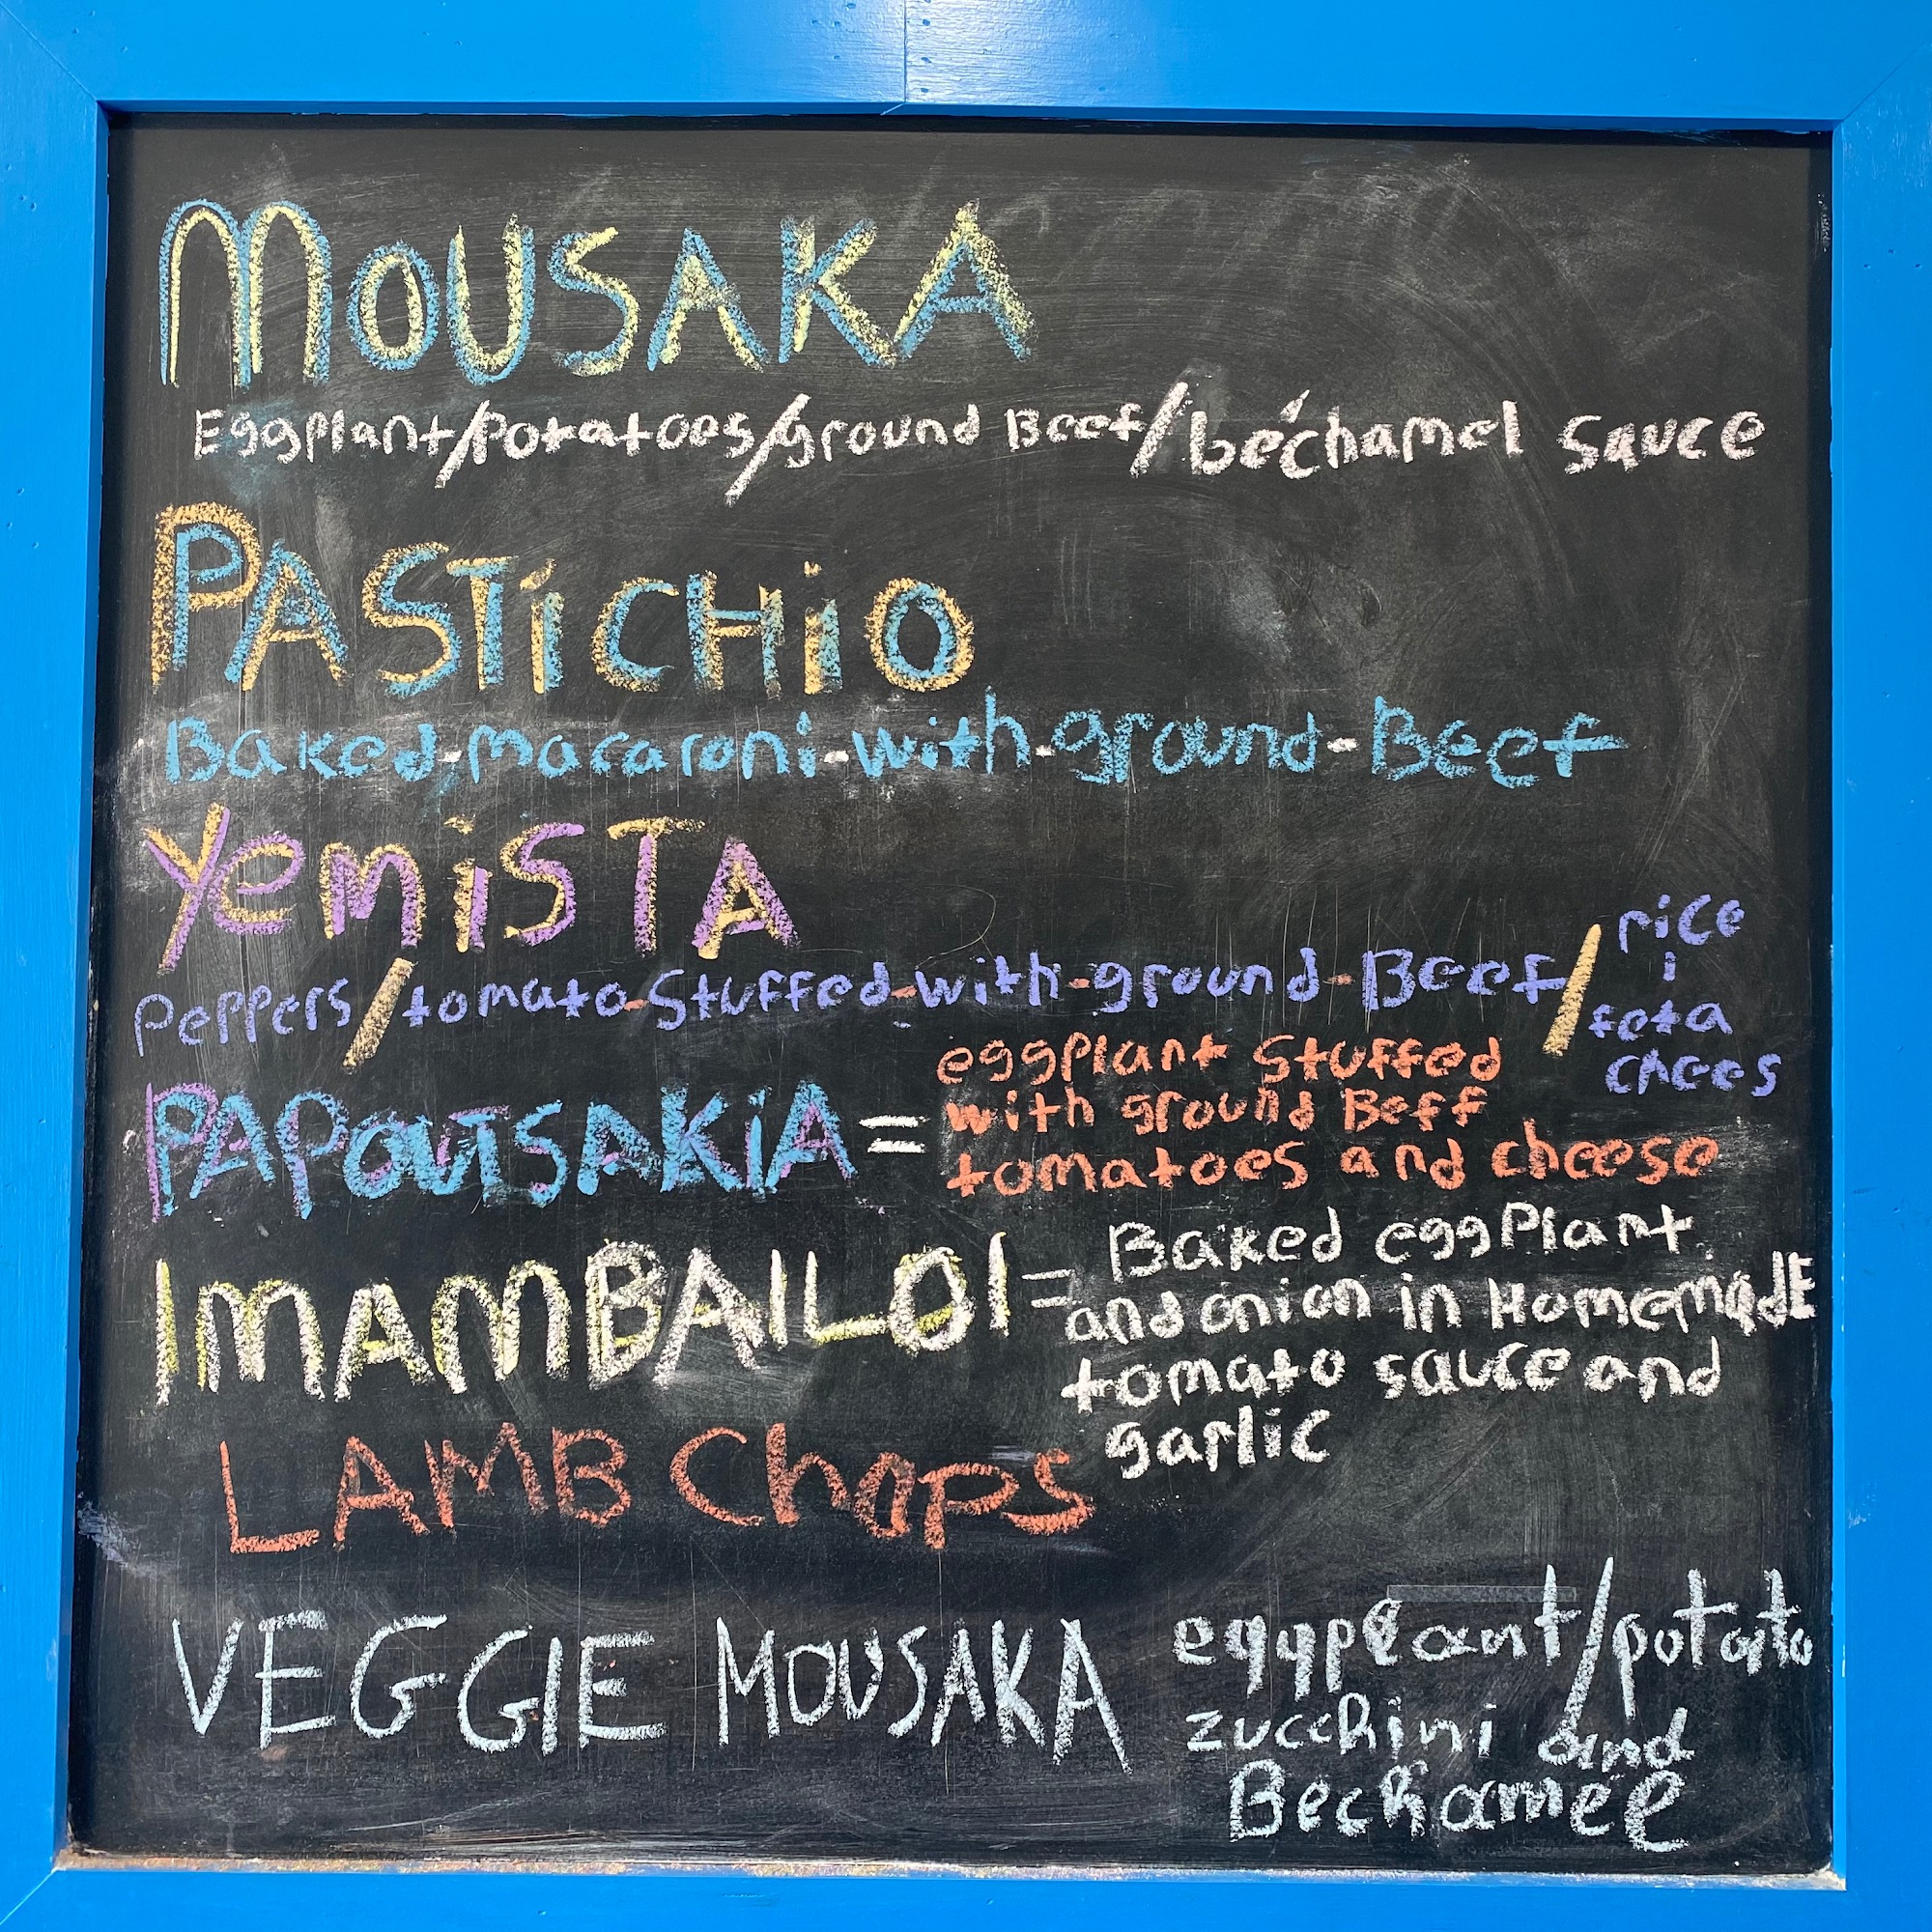 MOUSAKA
Eggplant/Potatoes/ground Beef/béchamel sauce
PASTiCHiO
Baked-macaroni-with-ground-Beef
YemiSTA
Peppers/tomato-Stuffed-with-ground-Beef/rice
i
feta
chees
PAPOUTSAKiA = eggplant Stuffed
with ground Beff
tomatoes and cheese
IMAMBAILOI = Baked eggPlant
and onion in HomemadE
tomato sauce and
garlic
LAMB Chops
VEGGIE MOUSAKA eggplant/potato
zucchini and
Bechamel